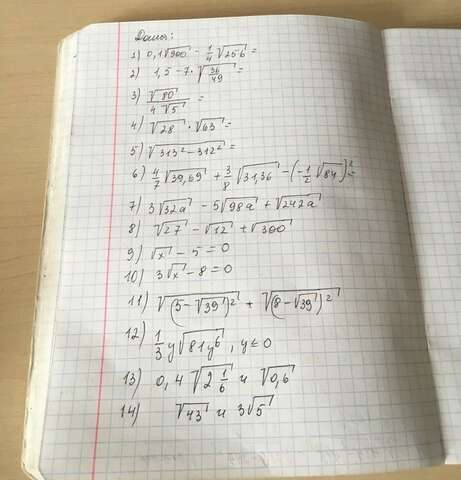 Дома:
1) 0,1√900 - 1/4 √256 =
2) 1,5 - 7·√(36/49) =
3) √80 / 4√5 =
4) √28 · √63 =
5) √(313² - 312²) =
6) 4/7 √39,69 + 3/8 √31,36 - (-1/2 √84)² =
7) 3√32a - 5√98a + √242a
8) √27 - √12 + √300
9) √x - 5 = 0
10) 3√x - 8 = 0
11) √(5-√39)² + √(8-√39)²
12) 1/3 y√81y⁶, y ≤ 0
13) 0,4 √(2 1/6) и √0,6
14) √43 и 3√5